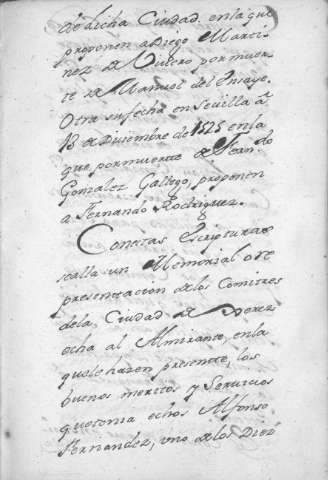 de dicha Ciudad. enla que
proponen a Diego Marti-
nez de Vivero por muer-
te de Manuel del Ensaye.
Otra su fecha en Sevilla a
18 de Diciembre de 1525 en la
que, por muerte de Fran.co
Gonzalez Gallego, proponen
a Fernando Rodriguez.
Con estas Escripturas
se alla un Memorial o re
presentacion de los Comitres
dela, Ciudad de Xerez
echa al Almirante, en la
qual le hazen presente, los
buenos meritos y Servicios
que tenia echos Alfonso
Fernandez, uno de los Diez